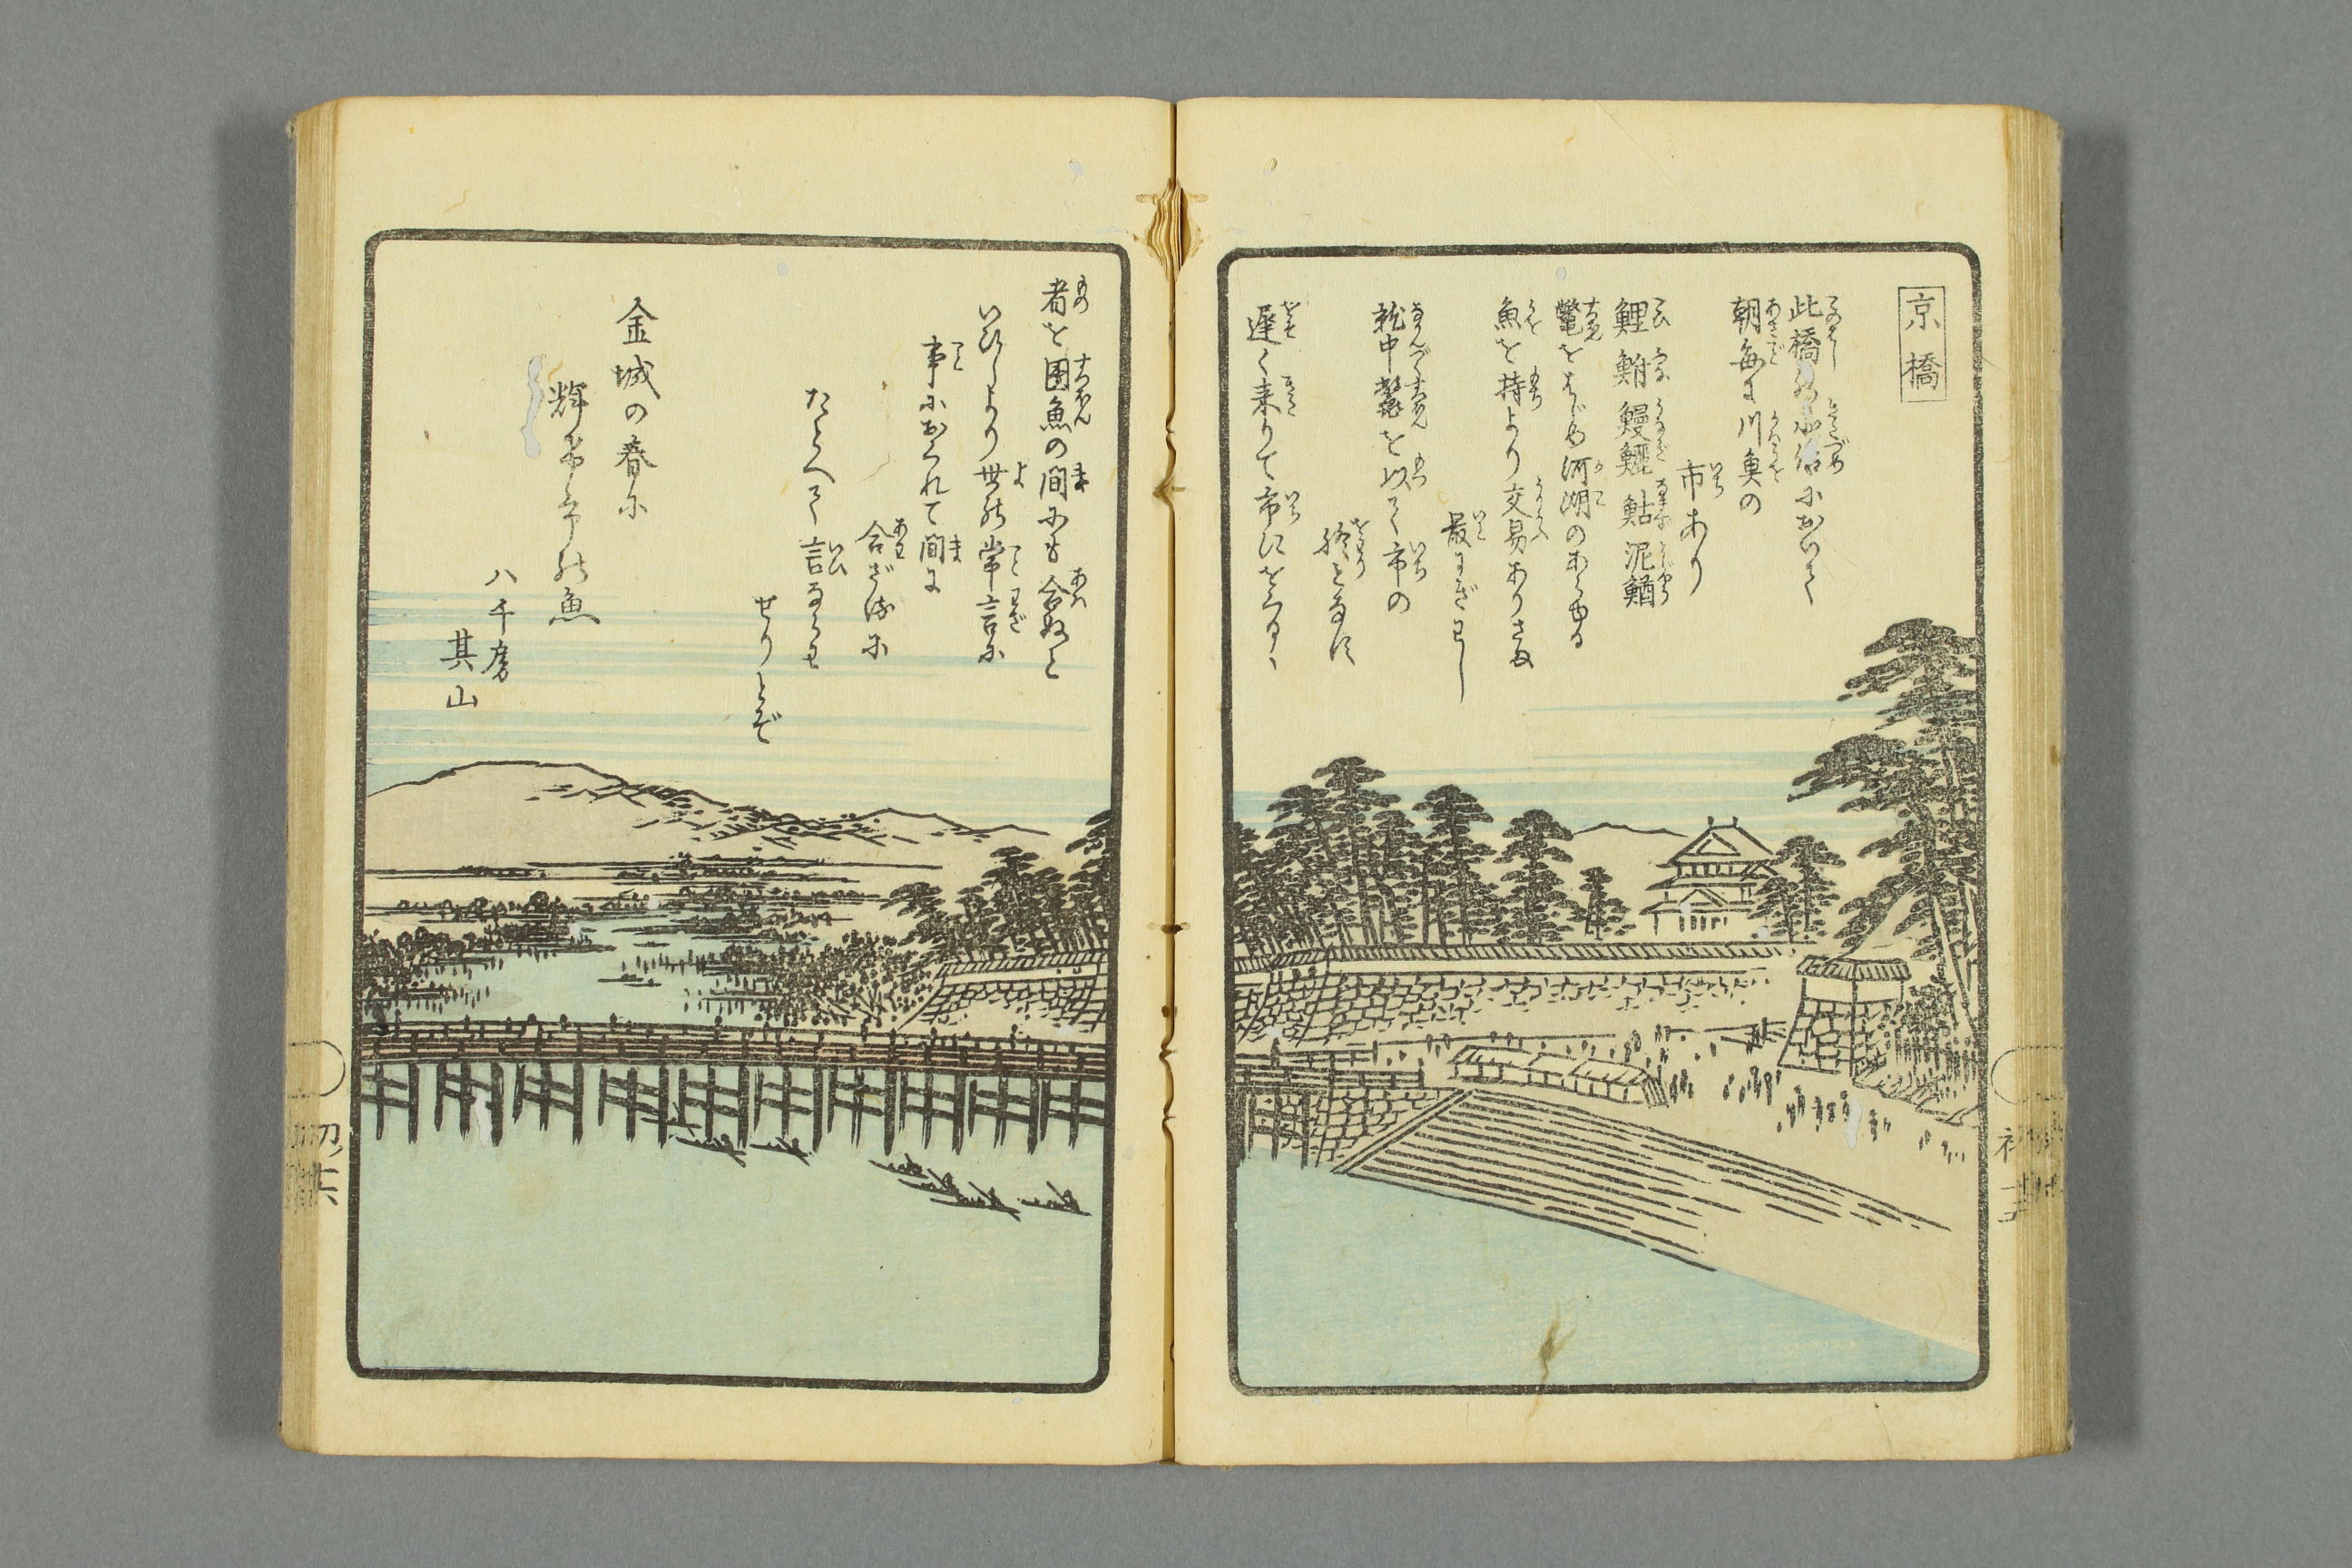 京橋
此橋の北詰におゐて
朝毎に川魚の
市あり
鯉鮒鰻鱺鮎泥鰌
鼈をはじめ河湖のあらゆる
魚を持より交易ありさま
最にぎわし
中鼈を以て市の
終となす
遅く来りて市にをくるゝ
者を團魚の間にも合ぬと
いひしより世の常言に
事におくれて間に
合ざるに
たとへて言ならわ
せりとぞ
金城の春に
輝や市の魚
八千房
其山